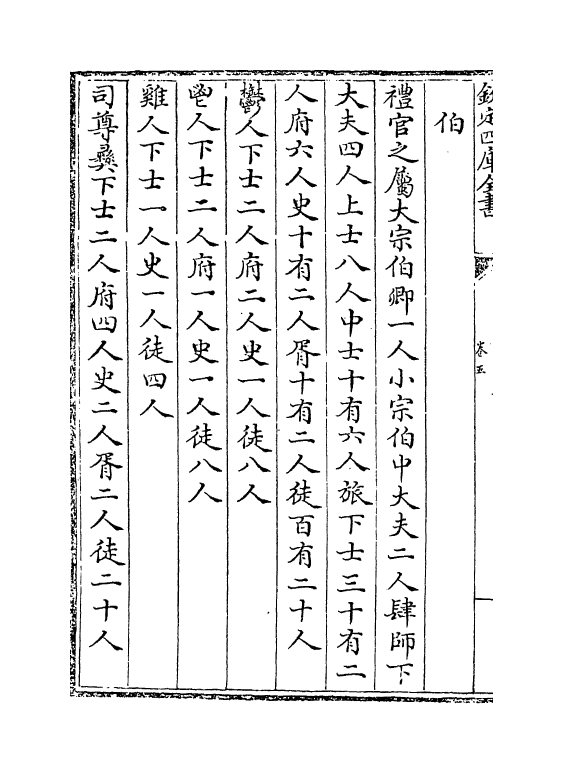 欽定四庫全書
卷五
伯
禮官之屬大宗伯卿一人小宗伯中大夫二人肆師下
大夫四人上士八人中士十有六人旅下士三十有二
人府六人史十有二人胥十有二人徒百有二十人
鬱人下士二人府二人史一人徒八人
鬯人下士二人府一人史一人徒八人
雞人下士一人史一人徒四人
司尊彞下士二人府四人史二人胥二人徒二十人